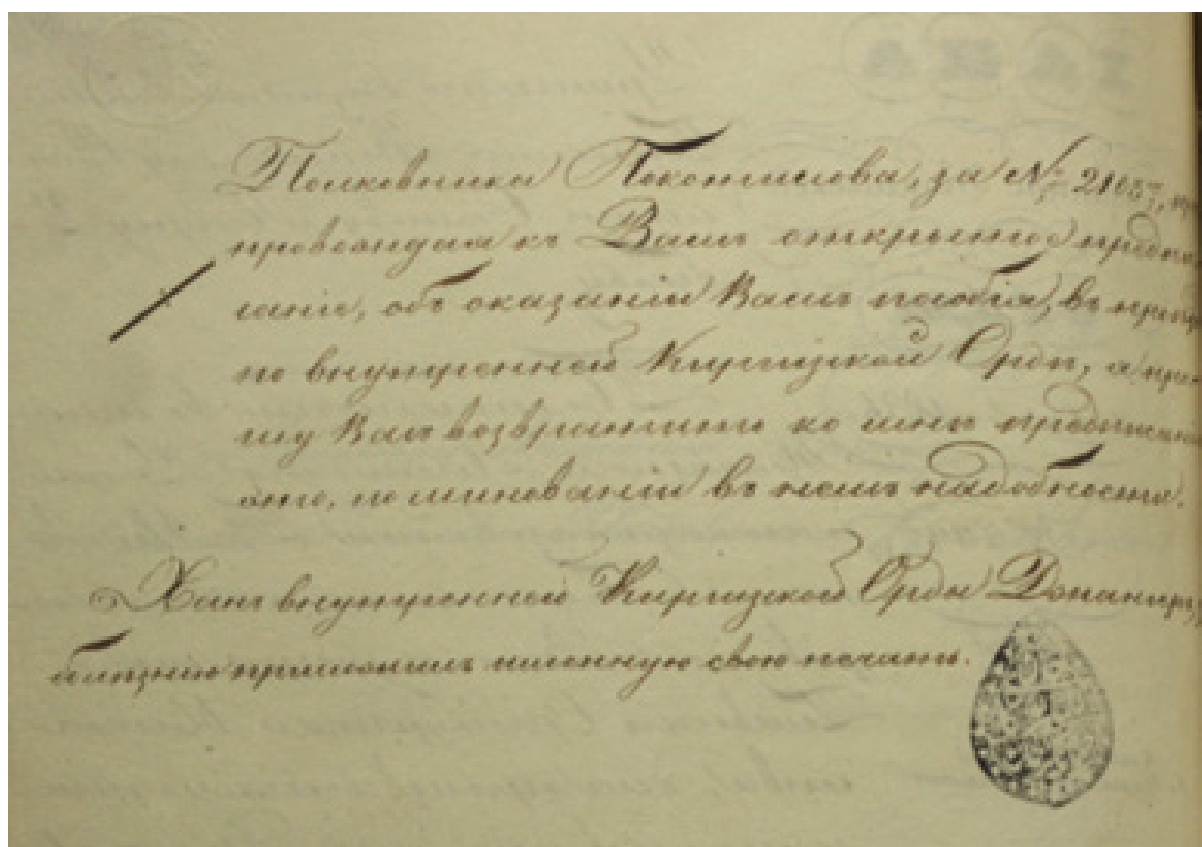 Полковника Покотилова, за № 21057, пре
провождая къ Вамъ открытое предпи
саніе, объ оказаніи Вамъ пособія, въ проѣздъ
по внутренней Киргизской Ордѣ, я про-
шу Васъ возвратить ко мнѣ предписаніе
это, по минованіи въ немъ надобности.
Ханъ внутренней Киргизской Орды Джангиръ,
болѣзнію приложилъ именную свою печать.